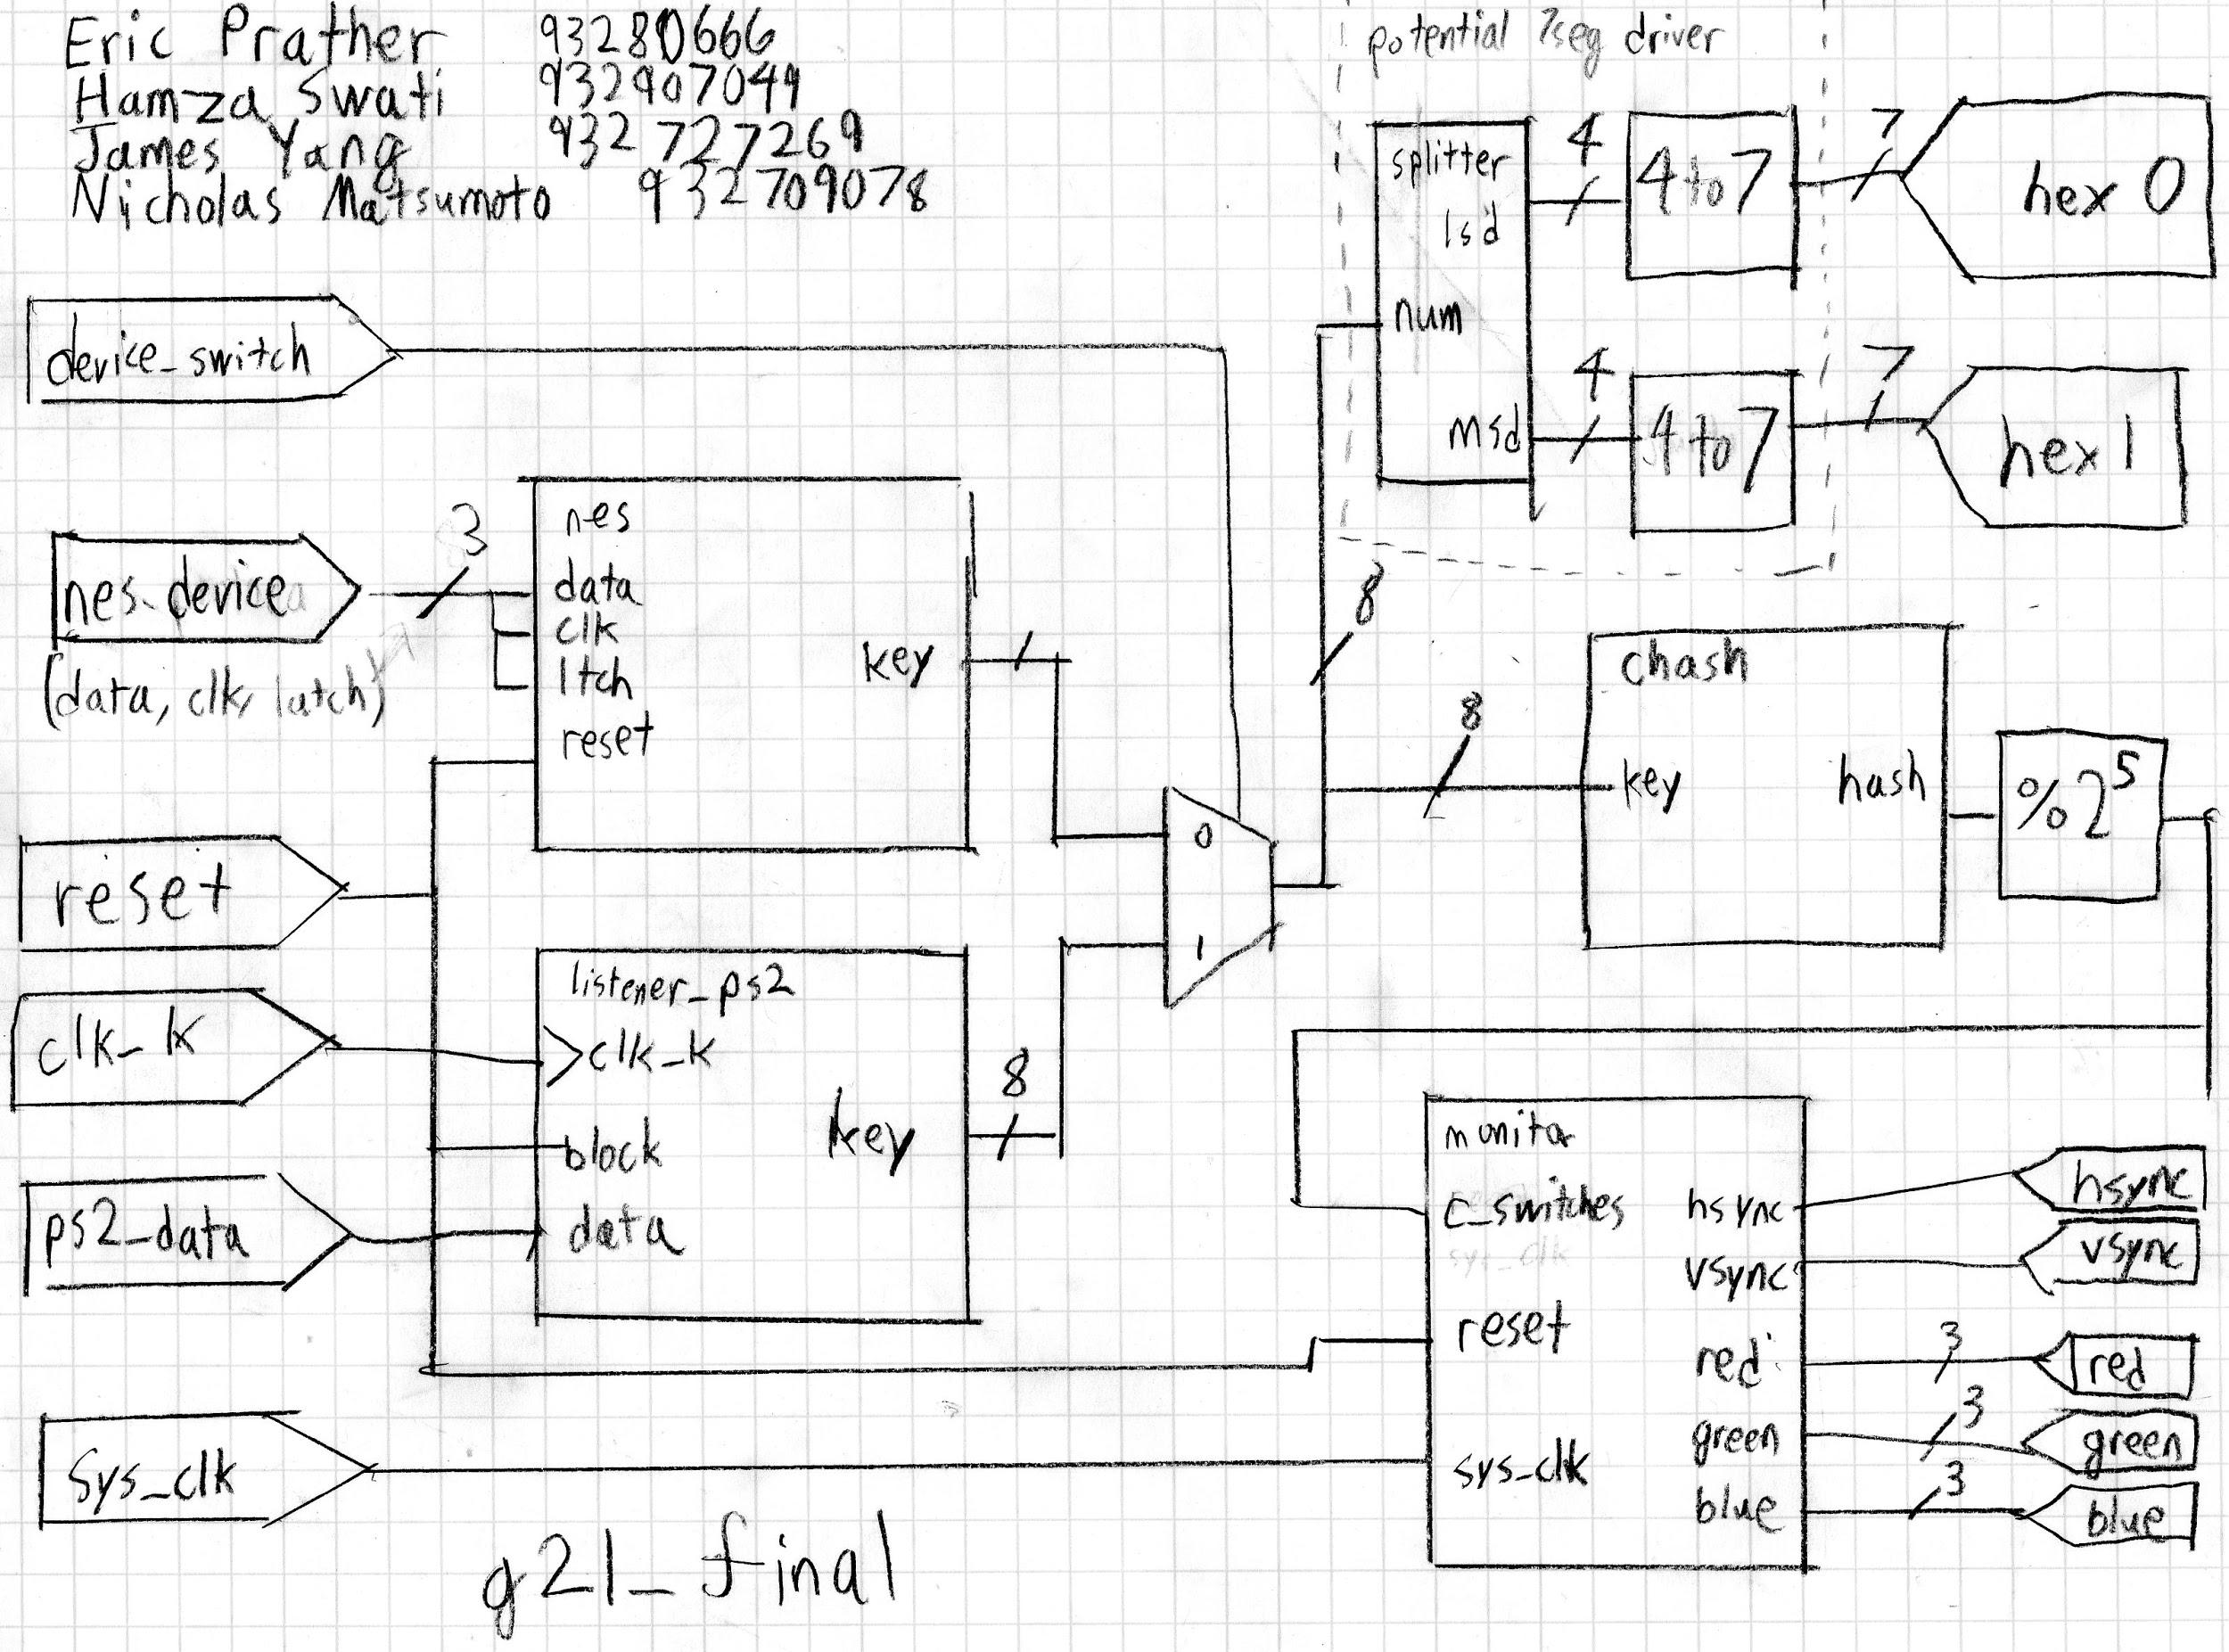 Eric Prather 93280666
Hamza Swati 932907049
James Yang 932727269
Nicholas Matsumoto 932709078
potential 7seg driver
splitter
lsd
num
msd
4
4 to 7
7
hex 0
4
4 to 7
7
hex 1
device_switch
nes_device
(data, clk, latch)
3
nes
data
clk
ltch
reset
key
reset
clk_k
ps2_data
listener_ps2
clk_k
block
data
key
8
0
1
8
8
chash
key
hash
%2^5
monitor
c_switches
sys_clk
reset
sys_clk
hsync
vsync
red
green
blue
3
3
3
hsync
vsync
red
green
blue
Sys_clk
g21_final